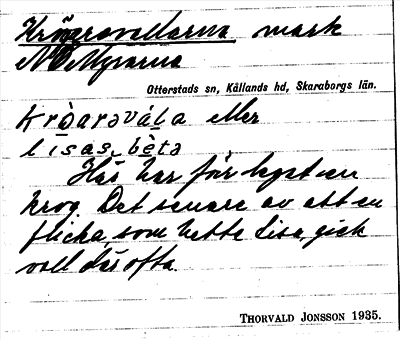 Krögarevallarna mark
NO Myrarna
Otterstads sn, Kållands hd, Skaraborgs län.
kròaraváɫa eller
lisas bèta
Här har förr legat en
krog. Det senare av att en
flicka, som hette Lisa, gick
vall där ofta.
THORVALD JONSSON 1935.